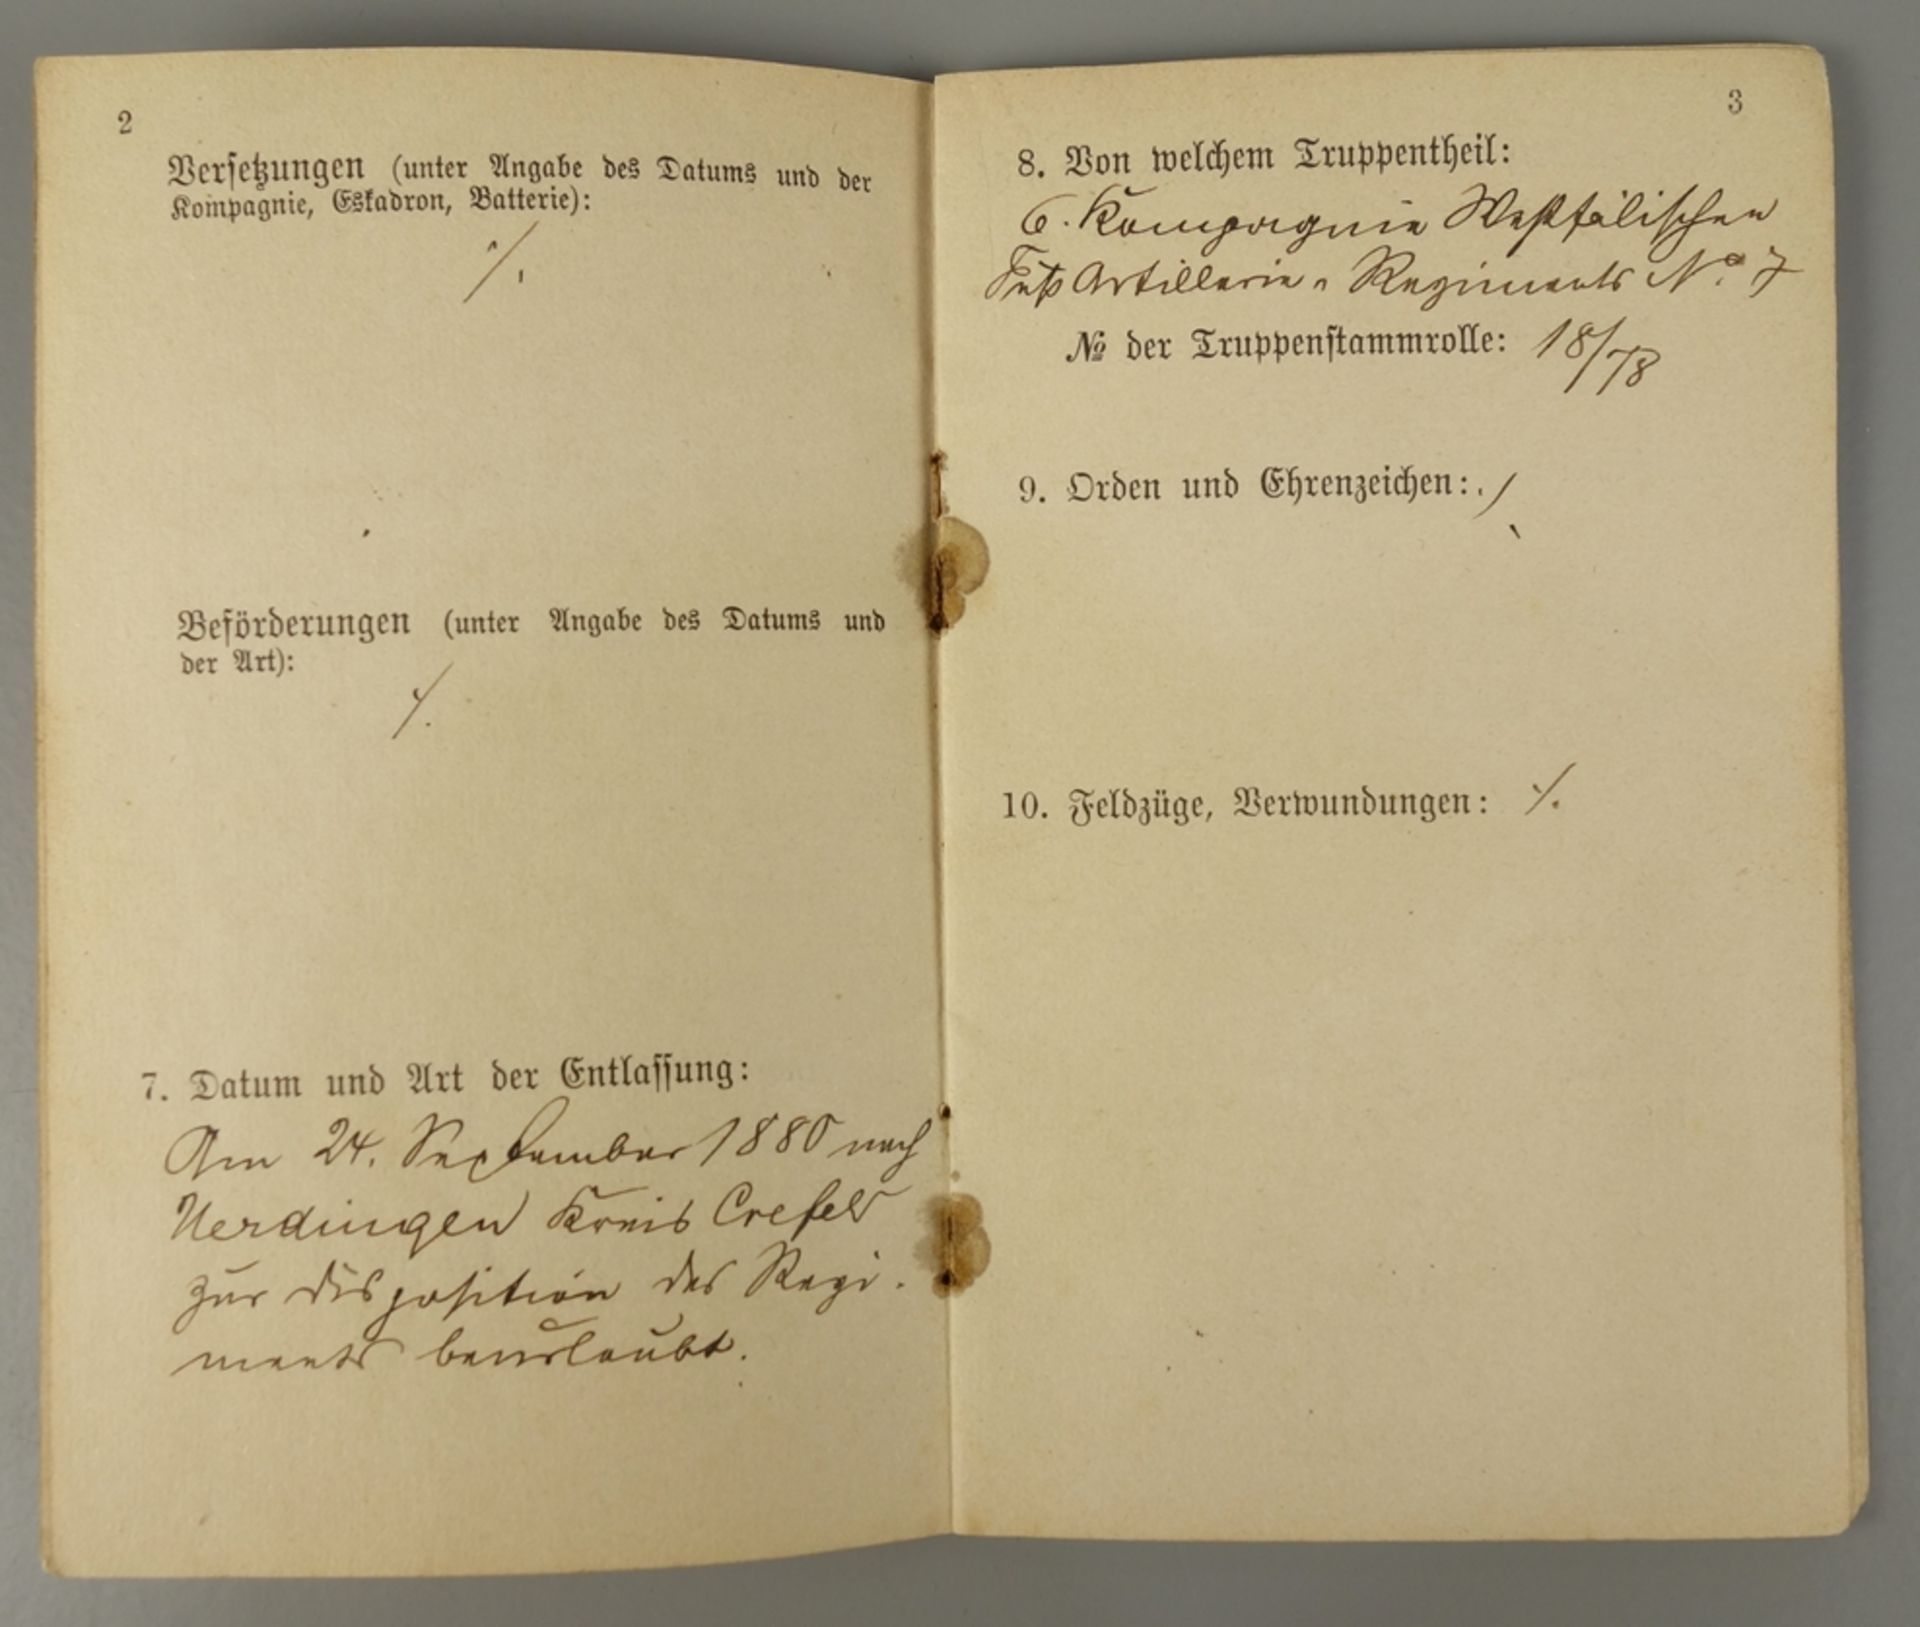 2
Versetzungen (unter Angabe des Datums und der
Kompagnie, Eskadron, Batterie):
·/.
Beförderungen (unter Angabe des Datums und
der Art):
·/.
7. Datum und Art der Entlassung:
Am 24. September 1880 nach
Uerdingen Kreis Crefeld
zur Disposition des Regi-
ments beurlaubt.
3
8. Von welchem Truppentheil:
6. Kompagnie Westfälischen
Fuß Artillerie-Regiments No. 7
No der Truppenstammrolle: 18/78
9. Orden und Ehrenzeichen: ·/.
10. Feldzüge, Verwundungen: ·/.